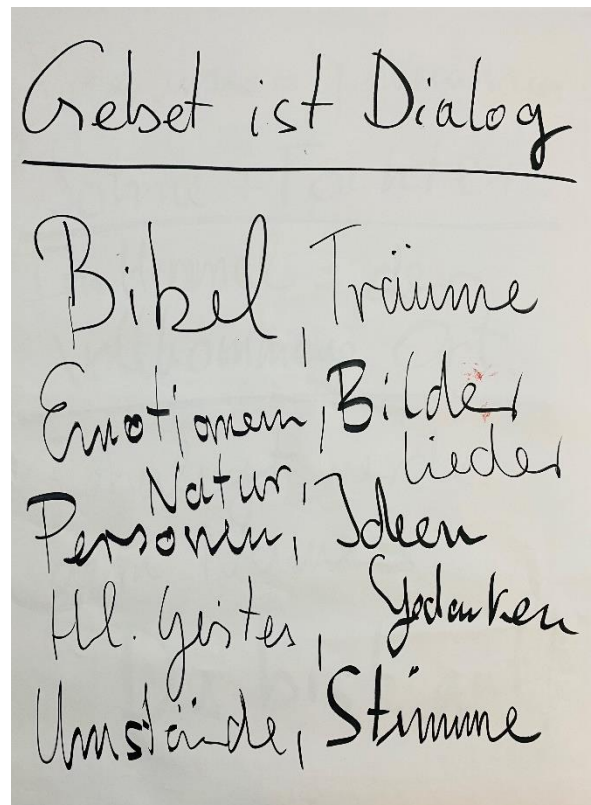 Gebet ist Dialog
Bibel, Träume
Emotionen, Bilder
Natur, Lieder
Personen, Ideen
Hl. Geistes, Gedanken
Umstände, Stimme